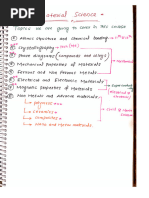 Material Science
Topics we are going to cover in this course
① Atomic Structure and Chemical bonding
② Crystallography
③ Phase diagrams (compounds and alloys)
④ Mechanical Properties of Materials
⑤ Ferrous and Non Ferrous Metals
⑥ Electrical and Electronic Materials
⑦ Magnetic Properties of Materials
⑧ Non Metals and Advance materials
→ polymers
→ ceramics
→ composites
→ Nano and Micro materials